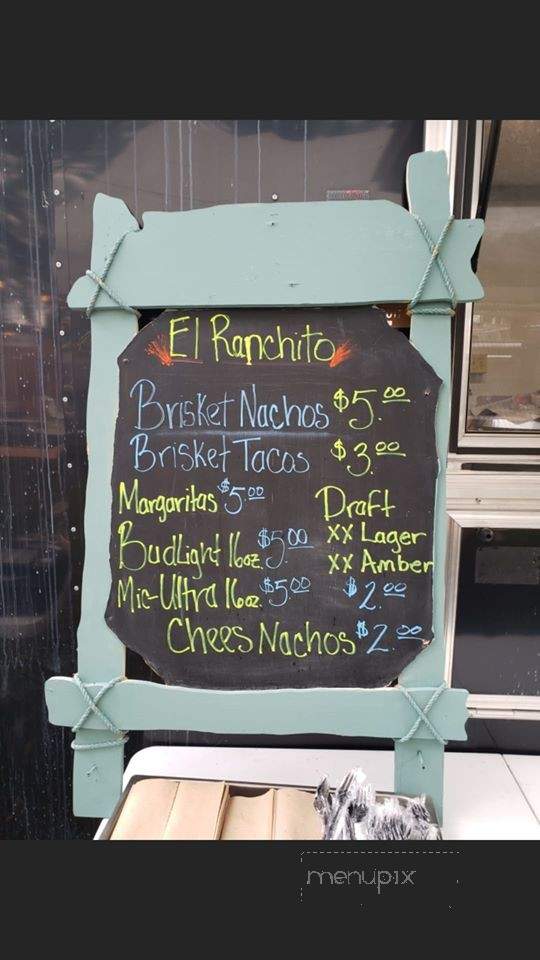 El Ranchito
Brisket Nachos $5.00
Brisket Tacos $3.00
Margaritas $5.00
Draft
BudLight 16oz. $5.00
XX Lager
XX Amber
Mic-Ultra 16oz. $5.00
$2.00
Chees Nachos $2.00
menupix